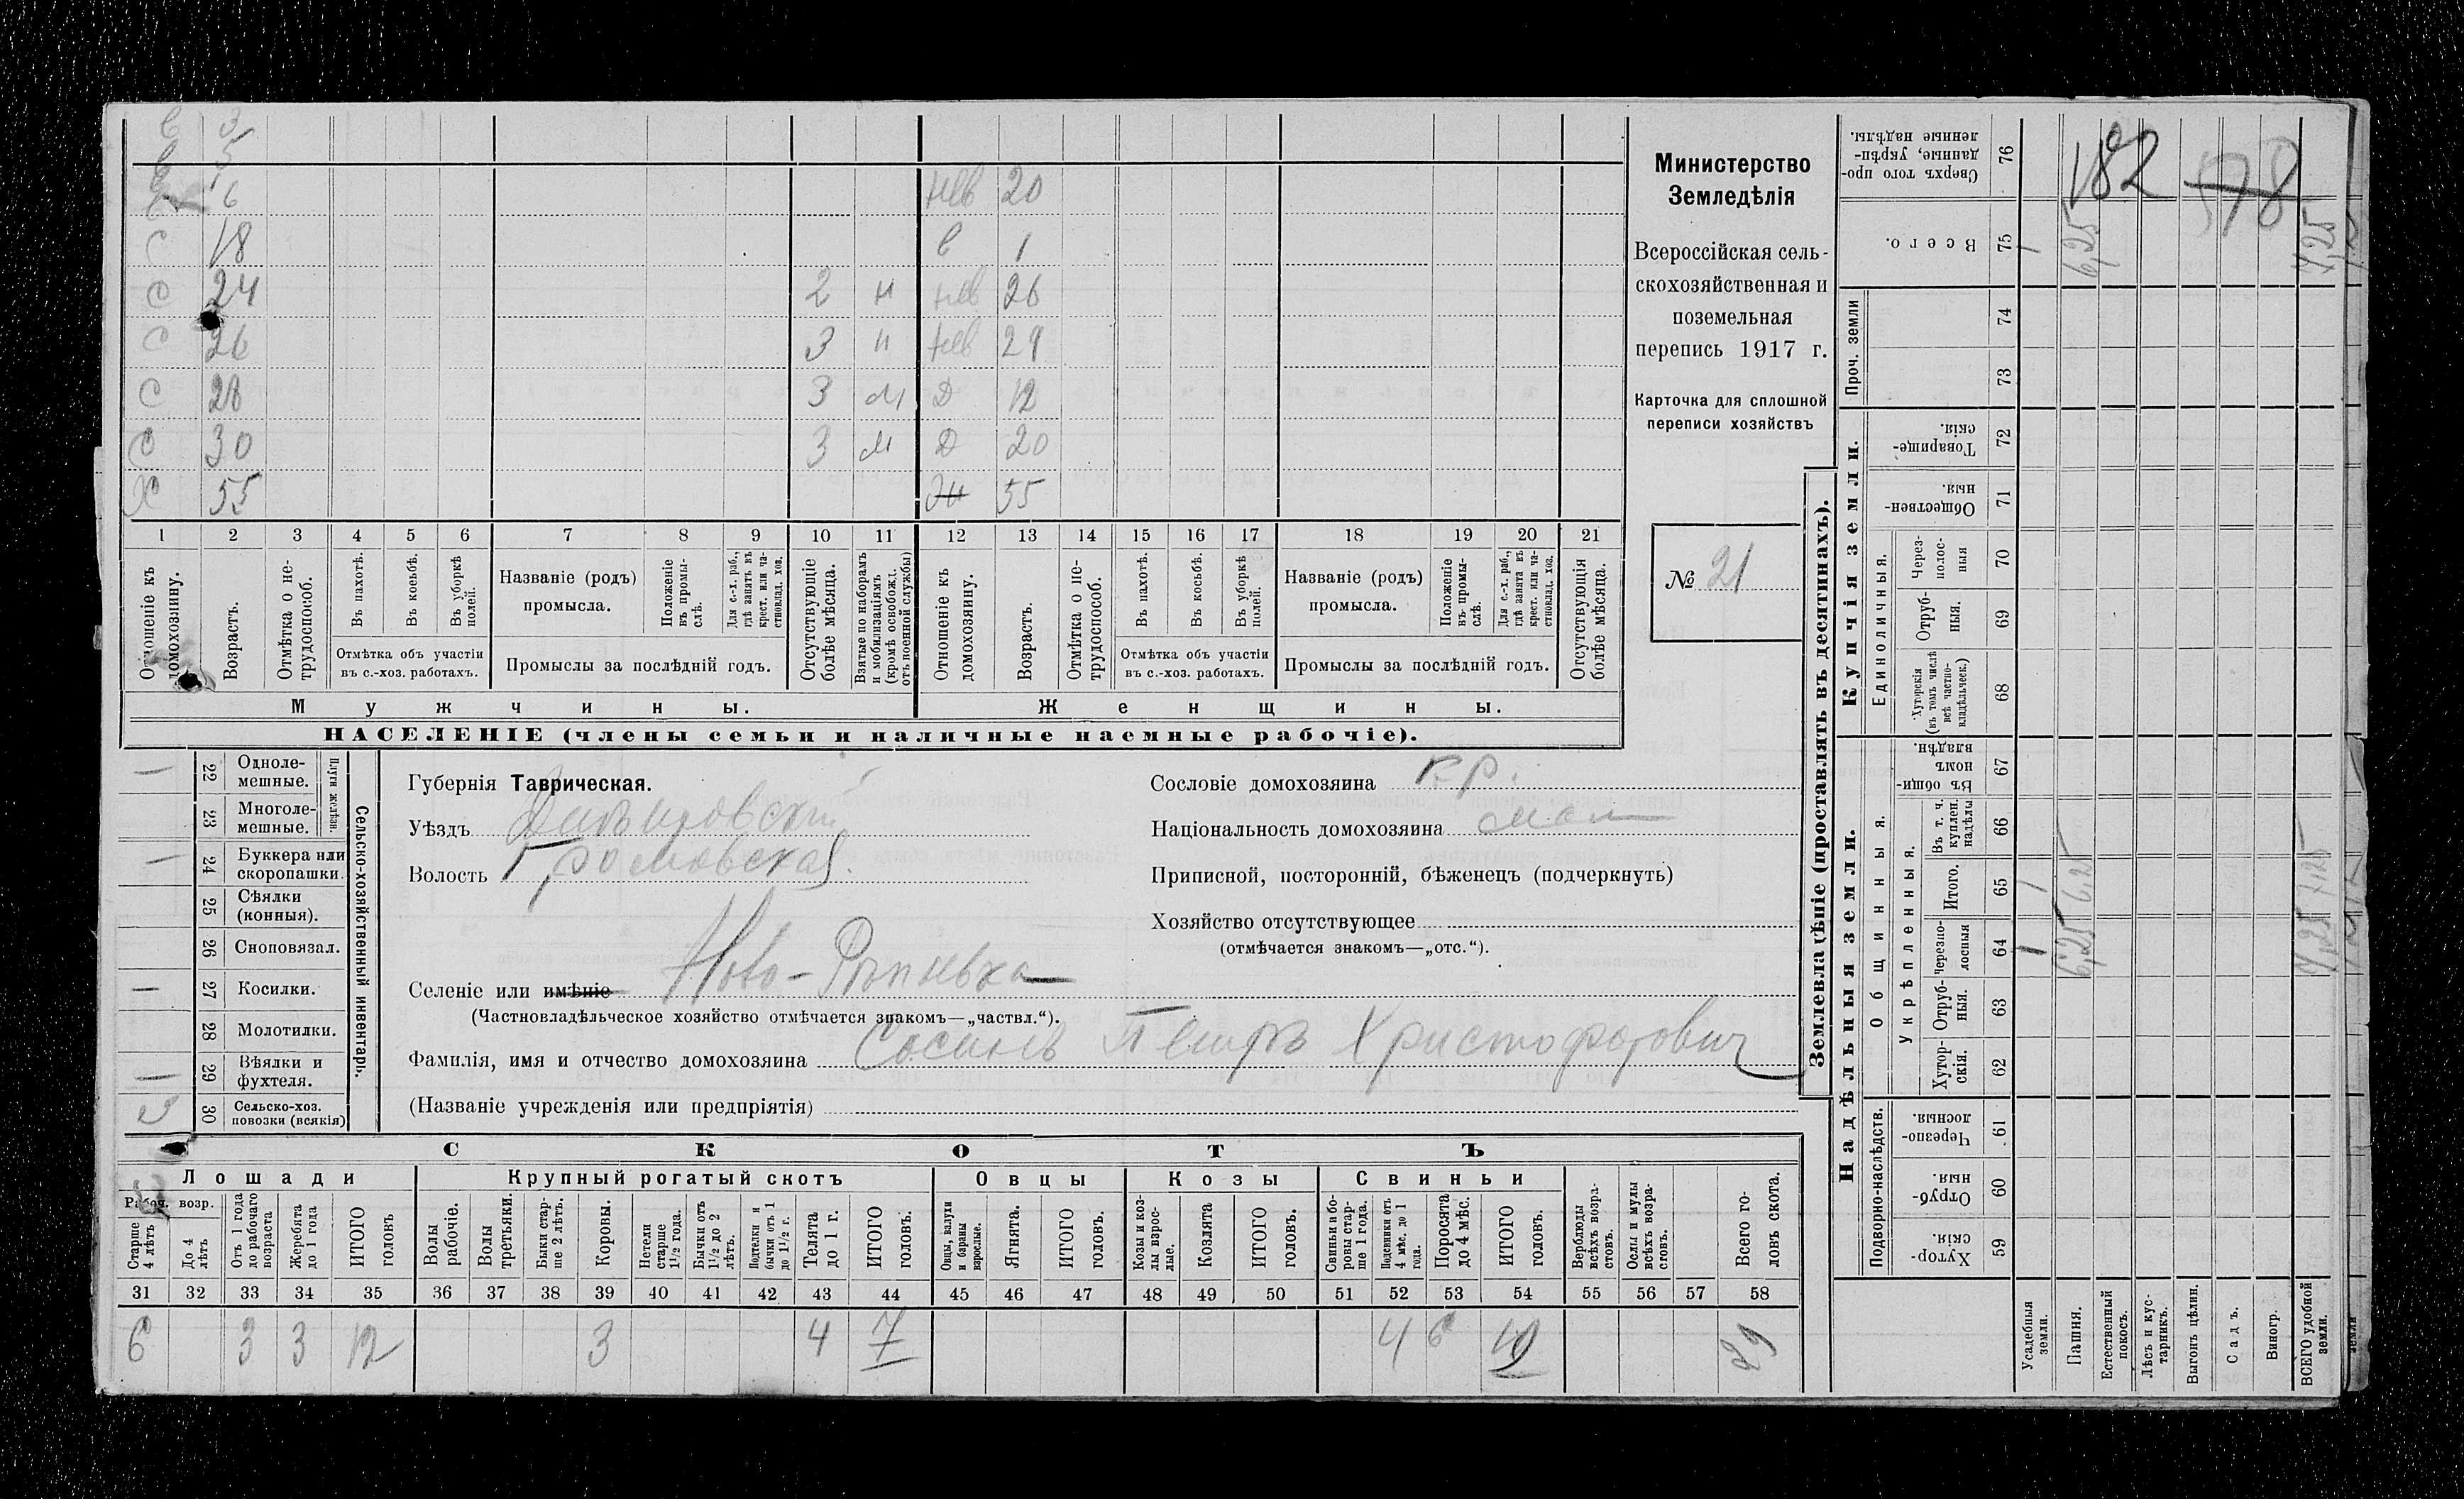 в 3
в 5
в 6 нев 20
с 18 в 1
с 24 2 н нев 26
с 26 3 н нев 29
с 28 3 м д 12
с 30 3 м д 20
х 55 ж 55
1 2 3 4 5 6 7 8 9 10 11 12 13 14 15 16 17 18 19 20 21
Отношеніе къ домохозяину.
Возрастъ.
Отмѣтка о нетрудоспособ.
Въ пахотѣ.
Въ косьбѣ.
Въ уборкѣ полей.
Отмѣтка объ участіи
въ с.-хоз. работахъ.
Названіе (родъ)
промысла.
Положеніе въ промыслѣ.
Для с.-х. раб., гдѣ занятъ въ крест. или частновлад. хоз.
Промыслы за послѣдній годъ.
Отсутствующіе болѣе мѣсяца.
Взятые по наборамъ и мобилизаціямъ (кромѣ освобожд. отъ военной службы)
Отношеніе къ домохозяину.
Возрастъ.
Отмѣтка о нетрудоспособ.
Въ пахотѣ.
Въ косьбѣ.
Въ уборкѣ полей.
Отмѣтка объ участіи
въ с.-хоз. работахъ.
Названіе (родъ)
промысла.
Положеніе въ промыслѣ.
Для с.-х. раб., гдѣ занята въ крест. или частновлад. хоз.
Промыслы за послѣдній годъ.
Отсутствующія болѣе мѣсяца.
Мужчины. Женщины.
НАСЕЛЕНІЕ (члены семьи и наличные наемные рабочіе).
Министерство
Земледѣлія
Всероссійская сель-
скохозяйственная и
поземельная
перепись 1917 г.
Карточка для сплошной
переписи хозяйствъ
№ 21
22 Однолемешные.
23 Многолемешные.
Плуги желѣзн.
24 Буккера или скоропашки.
25 Сѣялки (конныя).
26 Сноповязал.
27 Косилки.
28 Молотилки.
29 Вѣялки и фухтеля.
30 Сельско-хоз. повозки (всякія)
Сельско-хозяйственный инвентарь.
Губернія Таврическая.
Уѣздъ
Волость Громовская
Селеніе или имѣніе Ново-
(Частновладѣльческое хозяйство отмѣчается знакомъ—„частвл.“).
Фамилія, имя и отчество домохозяина Петръ Христофорович
(Названіе учрежденія или предпріятія)
Сословіе домохозяина кр.
Національность домохозяина мал
Приписной, посторонній, бѣженецъ (подчеркнуть)
Хозяйство отсутствующее
(отмѣчается знакомъ—„отс.“).
СКОТЪ
Лошади Крупный рогатый скотъ Овцы Козы Свиньи
Рабоч. возр.
Старше 4 лѣтъ
До 4 лѣтъ
Отъ 1 года до рабочаго возраста
Жеребята до 1 года
ИТОГО головъ
Волы рабочіе.
Волы третьяки.
Быки старше 2 лѣтъ.
Коровы.
Нетели старше 1½ года.
Бычки отъ 1½ до 2 лѣтъ.
Подтелки и бычки отъ 1 до 1½ г.
Телята до 1 г.
ИТОГО головъ.
Овцы, валухи и бараны взрослые.
Ягнята.
ИТОГО головъ.
Козы и козлы взрослые.
Козлята
ИТОГО головъ.
Свиньи и боровы старше 1 года.
Подсвинки отъ 4 мѣс. до 1 года.
Поросята до 4 мѣс.
ИТОГО головъ.
Верблюды всѣхъ возрастовъ.
Ослы и мулы всѣхъ возрастовъ.
Всего головъ скота.
31 32 33 34 35 36 37 38 39 40 41 42 43 44 45 46 47 48 49 50 51 52 53 54 55 56 57 58
6 3 3 12 3 4 7 4 6 10 29
Землевладѣніе (проставлять въ десятинахъ).
Надѣльныя земли. Купчія земли. Проч. земли
Подворно-наслѣдств.
Общинныя.
Укрѣпленныя.
Единоличныя.
Хуторскія 59
Отрубныя. 60
Черезполосныя. 61
Хуторскія. 62
Отрубныя. 63
Черезполосныя 64
Итого. 65
Въ т. ч. куплен. надѣлы 66
Въ общинномъ владѣн. 67
Хуторскія (въ томъ числѣ всѣ частновладѣльческ.) 68
Отрубныя. 69
Черезполосныя 70
Общественныя. 71
Товарищескія. 72
73
74
Всего. 75
Сверхъ того проданные, укрѣпленные надѣлы. 76
Усадебныя земли. 1 1 1
Пашня. 6,25 6,25 6,25
Естественный покосъ.
Лѣсъ и кустарникъ.
Выгонъ цѣлин.
Садъ.
Виногр.
ВСЕГО удобной земли. 7,25 7,25 7,25
182 578